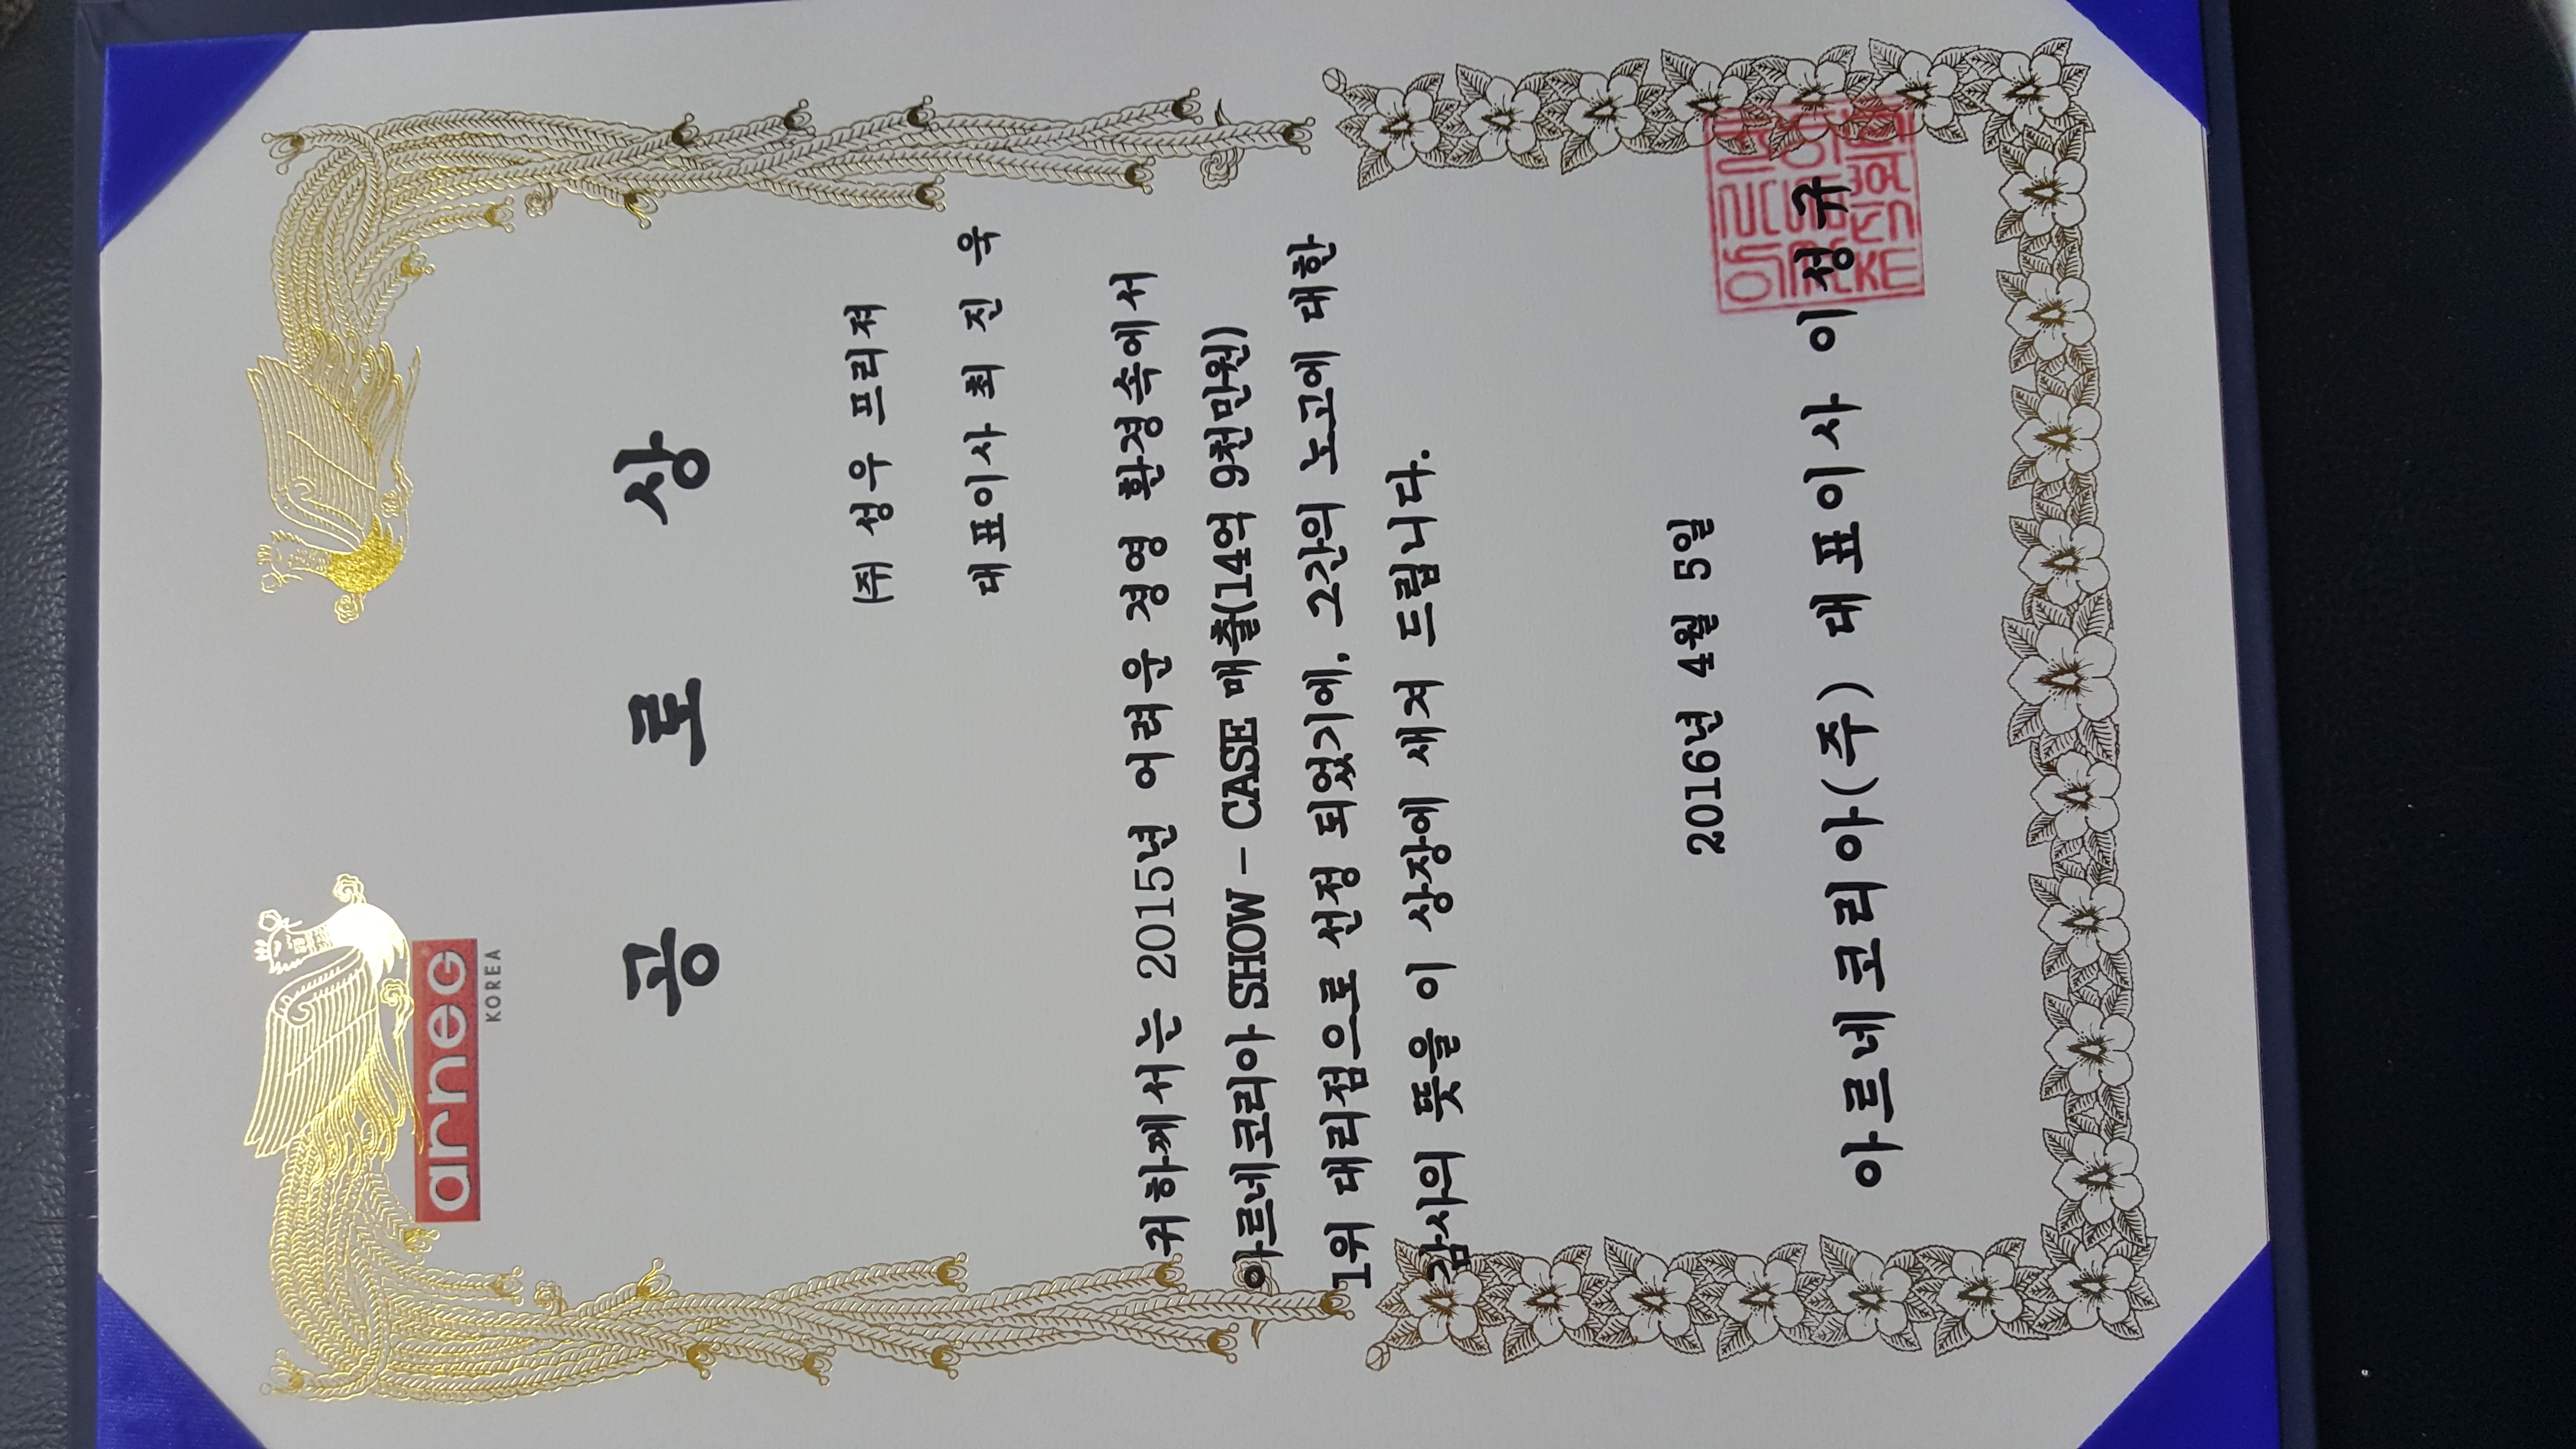 arneg
KOREA
공 로 상
㈜ 성우 프리져
대표이사 최 진 욱
귀하께서는 2015년 어려운 경영 환경속에서
아르네코리아 SHOW - CASE 매출(14억 9천만원)
1위 대리점으로 선정 되었기에, 그간의 노고에 대한
감사의 뜻을 이 상장에 새겨 드립니다.
2016년 4월 5일
아르네코리아(주) 대표이사 이성규